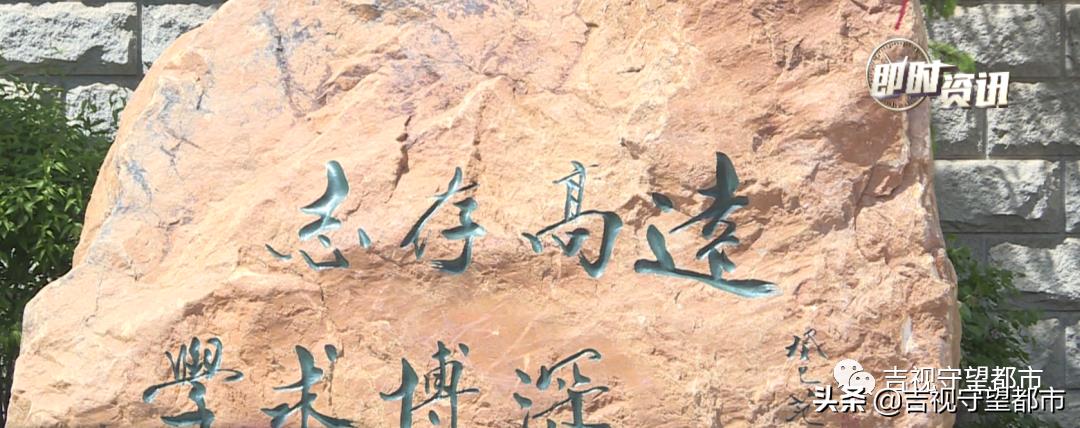 即时资讯
志存高远
學术博深
吉视守望都市
头条 @吉视守望都市